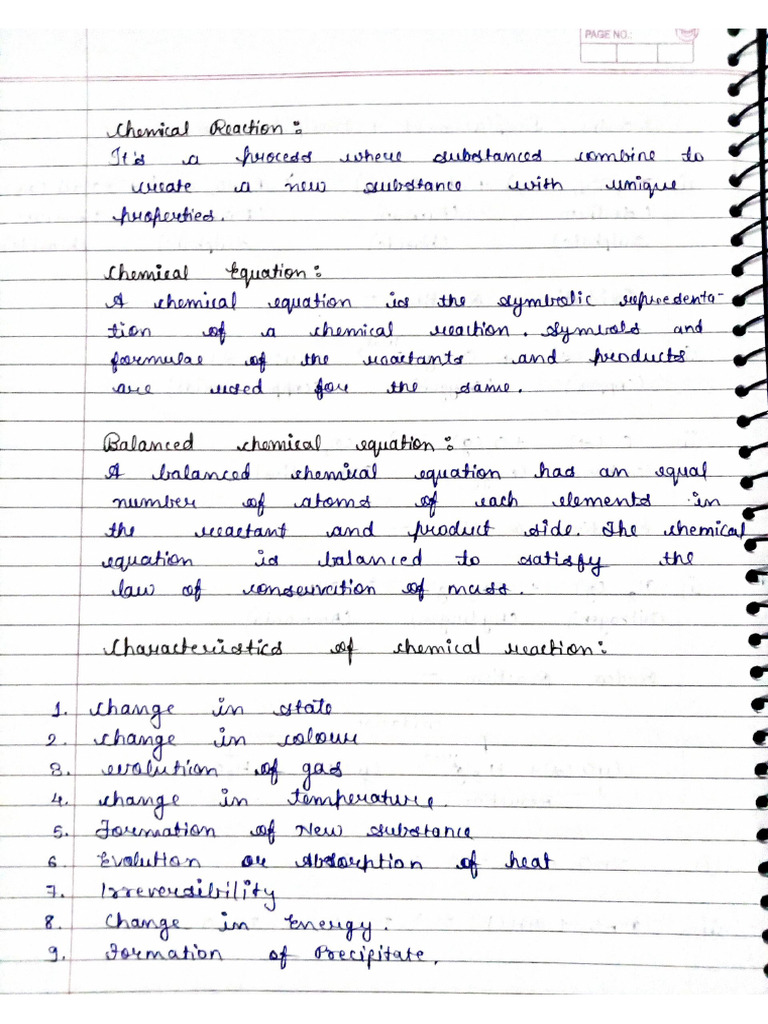 PAGE NO.:
Chemical Reaction:
It's a process where substances combine to
create a new substance with unique
properties.
Chemical Equation:
A chemical equation is the symbolic representa-
tion of a chemical reaction. Symbols and
formulae of the reactants and products
are used for the same.
Balanced chemical equation:
A balanced chemical equation has an equal
number of atoms of each elements in
the reactant and product side. The chemical
equation is balanced to satisfy the
law of conservation of mass.
Characteristics of chemical reaction:
1. change in state
2. change in colour
3. evolution of gas
4. change in temperature.
5. Formation of New substance
6. Evolution or Absorption of heat
7. Irreversibility
8. Change in Energy.
9. Formation of Precipitate.